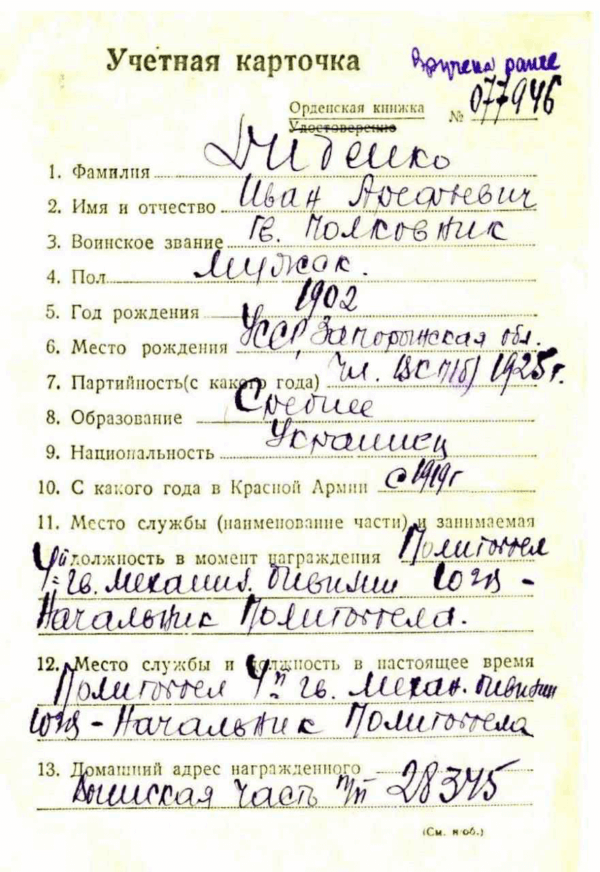 Учетная карточка
Вручена ранее
Орденская книжка
Удостоверение
№ 077946
1. Фамилия Диденко
2. Имя и отчество Иван Арсентьевич
3. Воинское звание Гв. Полковник
4. Пол Мужск.
5. Год рождения 1902
6. Место рождения УССР, Запорожская обл.
7. Партийность(с какого года) Чл. ВКП(б) 1925г.
8. Образование Среднее
9. Национальность Украинец
10. С какого года в Красной Армии с 1919г
11. Место службы (наименование части) и занимаемая
должность в момент награждения Политотдел
4й гв. механиз. дивизии ЮГВ -
Начальник Политотдела.
12. Место службы и должность в настоящее время
Политотдел 4й гв. Механ. дивизии
ЮГВ - Начальник Политотдела
13. Домашний адрес награжденного
Воинская часть п/п 28375
(См. н об.)